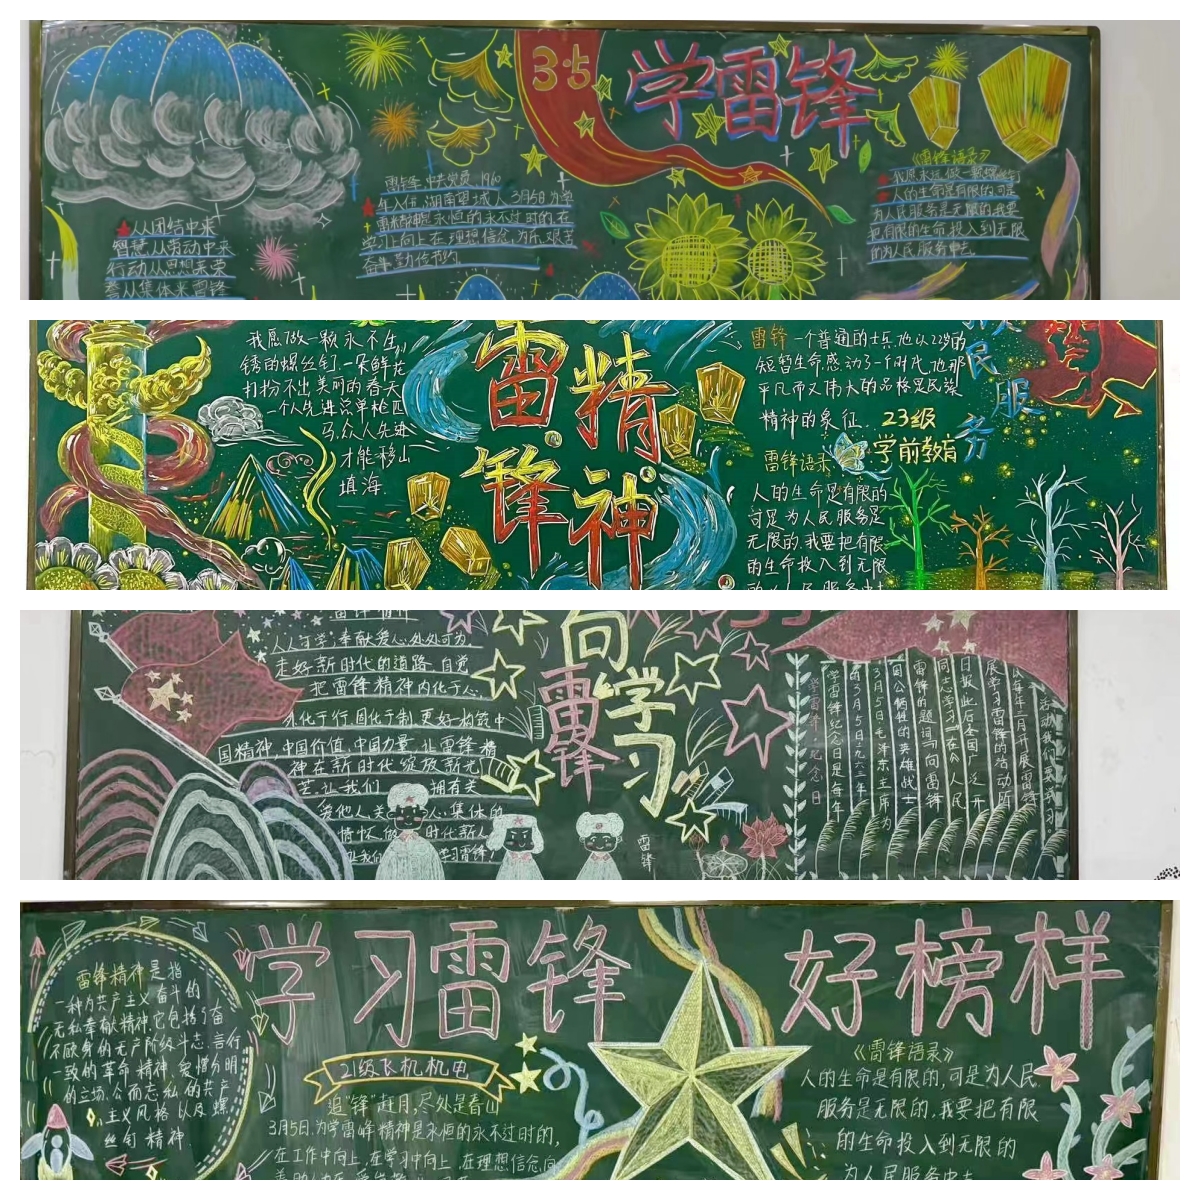 3·5
学雷锋
从团结中来
智慧从劳动中来
行动从思想来荣
誉从集体来雷锋
雷锋,中共党员,1940
年入伍,湖南望城人,3月5日为学
雷锋精神是永恒的永不过时的,在
学习上向上,在理想信念,为乐,艰苦
奋斗,勤俭节约.
《雷锋语录》
我愿永远做一颗螺丝钉
人的生命是有限的,可是
为人民服务是无限的我要
把有限的生命,投入到无限
的为人民服务中去
我愿做一颗永不生
锈的螺丝钉.一朵鲜花
打扮不出美丽的春天
一个人先进总单枪匹
马,众人先进
才能移山
填海.
雷锋
精神
雷锋一个普通的士兵,他以22岁的
短暂生命感动了一个时代,他那
平凡而又伟大的品格是民族
精神的象征.
23级
学前教育
民服务
雷锋语录
人的生命是有限的
可是为人民服务是
无限的.我要把有限
的生命投入到无限
人人可学;奉献爱心,处处可为.
走好新时代的道路,自觉
把雷锋精神内化于心.
外化于行,固化于制,更好构筑中
国精神,中国价值,中国力量,让雷锋精
神在新时代绽放新光
芒.让我们 拥有关
爱他人,关心集体的
情怀,做 时代新人
让我们 学习雷锋!
向
雷锋
学习
雷锋
学雷锋纪念日
学雷锋纪念日是每年
的3月5日,一九六三年
3月5日,毛泽东主席为
因公牺牲的英雄战士
雷锋的题词“向雷锋
同志学习”在《人民
日报》此后全国广泛开
展学习雷锋的活动,所
以每年三月开展雷锋
活动
学习雷锋
好榜样
雷锋精神是指
一种为共产主义奋斗的
无私奉献精神,它包括了奋
不顾身的无产阶级斗志,言行
一致的革命精神,爱憎分明
的立场,公而忘私的共产
主义风格以及螺
丝钉精神.
21级飞机机电
追“锋”赶月,尽处是春山
3月5日,为学雷峰精神是永恒的永不过时的,
在工作中向上,在学习中向上,在理想信念向
《雷锋语录》
人的生命是有限的,可是为人民
服务是无限的.我要把有限
的生命投入到无限的
为人民服务中去